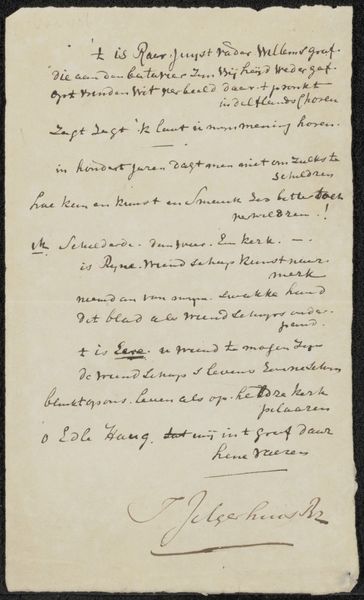 't is Raar, juyst vader Willems graf.
die aan den batavier zyn vryheyd weder gaf
op 't vinden wit verbeeld daar 't pronkt
in delftlands Chooren
Zagt Zagt 'k laat u myn mening hooren.
in hondert jaren dagt men niet om zulks te
schildren
hoe kan en kunst en Smaack
verwildren!
ik Schilderde dan weer Een kerk. —.
is Ryne Vriendschaps kunst
merk
neemd an van myne zwakke hand
dit blad als Vriendschaps onder
pand.
't is Eere u vriend te mogen zyn
de Vriendschap s levens
blinkt op ons leven als op he kerk
pilaaren
o Edle Haug. tot wij in t graf daar
hene vaeren
J Jelgerhuis Rz